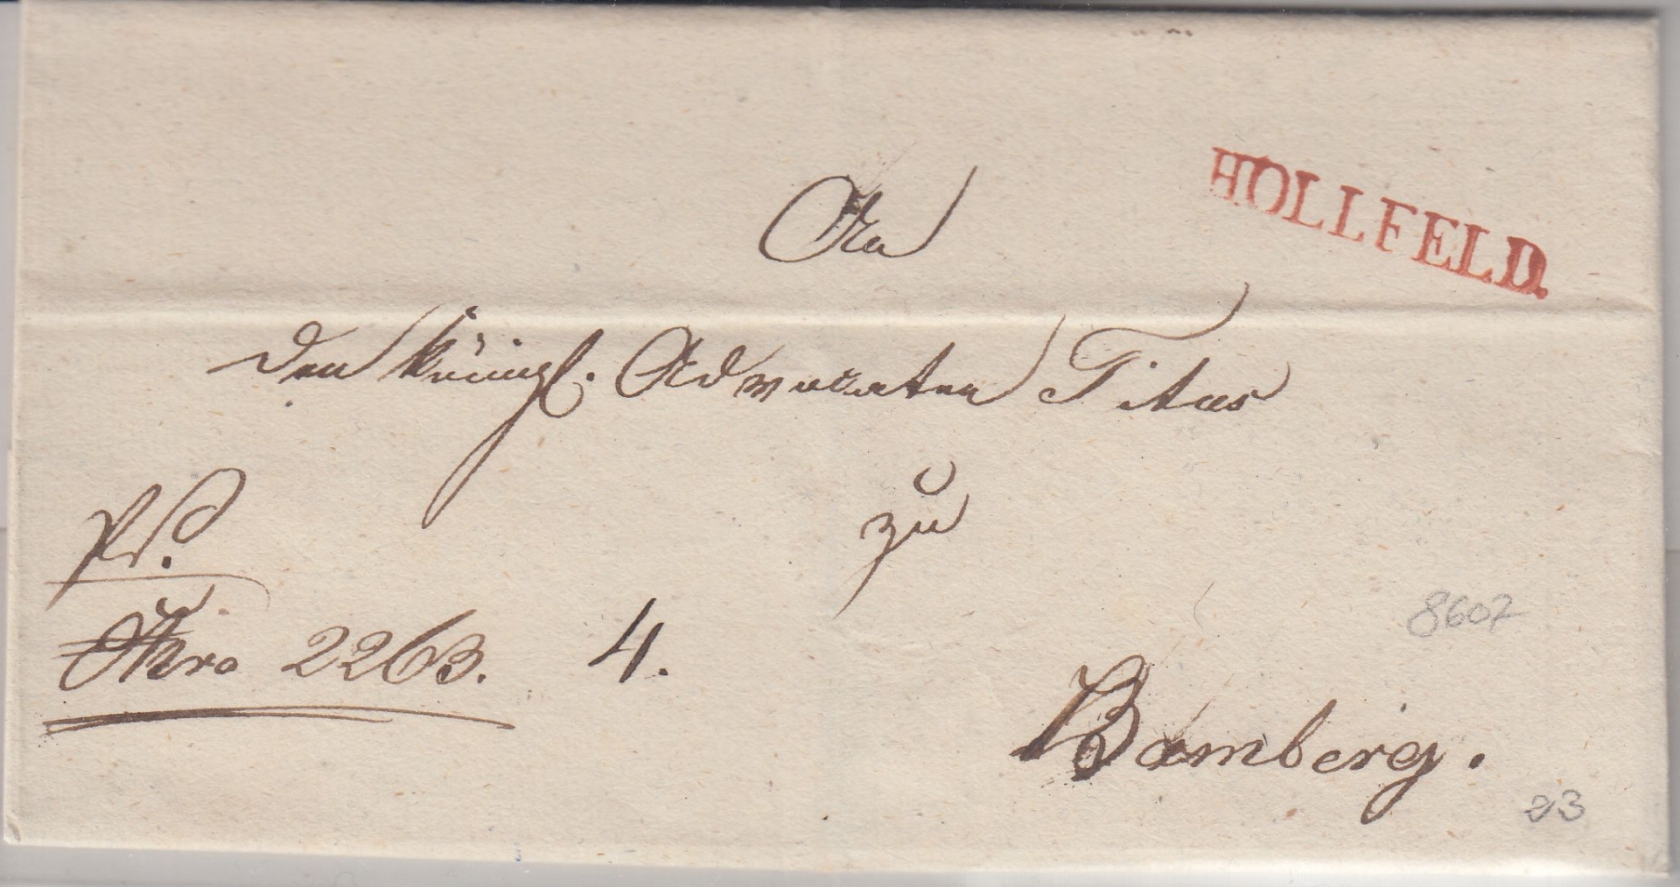 HOLLFELD.
An
den königl. Advocaten Titus
zu
Nro 2263. 4.
8607
Bamberg.
23